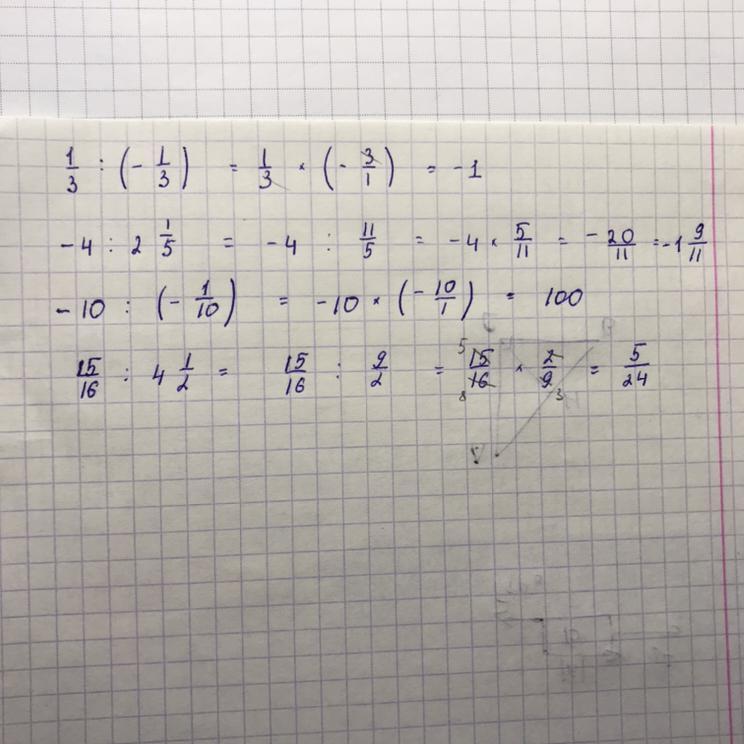 1/3 : (- 1/3) = 1/3 × (- 3/1) = -1
-4 : 2 1/5 = -4 : 11/5 = -4 × 5/11 = -20/11 = -1 9/11
-10 : (- 1/10) = -10 × (- 10/1) = 100
15/16 : 4 1/2 = 15/16 : 9/2 = 5 15/16 8 × 2/9 3 = 5/24